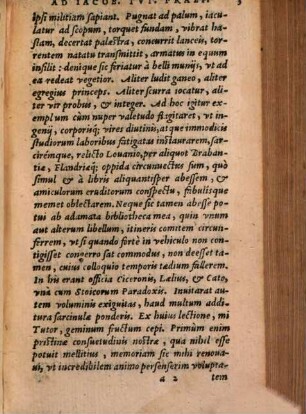 AD IACOB. TVT. PRAEF. 3
ipsi militiam sapiant. Pugnat ad palum, iacu
latur ad scopum, torquet fundam, vibrat ha
stam, decertat palæstra, concurrit lanceis, tor
rentem natatu transmittit, armatus in equum
insilit: denique sic feriatur à belli munijs, ut ad
ea redeat vegetior. Aliter ludit ganeo, aliter
egregius princeps. Aliter scurra iocatur, ali
ter vir probus, & integer. Ad hoc igitur exem
plum cùm nuper valetudo flagitaret, vt in
genij, corporisq; vires diutinis, atque immodicis
studiorum laboribus fatigatas instaurarem, sar
cirémque, relicto Louanio, per aliquot Braban
tiæ, Flandriæq; oppida circumuectus sum, quò
simul & à libris aliquantisper abessem, &
amiculorum eruditorum conspectu, fabulisque
memet oblectarem. Neque sic tamen abesse po
tui ab adamata bibliotheca mea, quin vnum
aut alterum libellum, itineris comitem circun
ferrem, vt si quando fortè in vehiculo non con
tigisset congerro sat commodus, non deesset ta
men, cuius colloquio temporis tædium fallerem.
In his erant officia Ciceronis, Lælius, & Cato,
vnà cum Stoicorum Paradoxis. Inuitarat au
tem voluminis exiguitas, haud multum addi
tura sarcinulæ ponderis. Ex huius lectione, mi
Tutor, geminum fructum cepi. Primùm enim
pristinæ consuetudinis nostræ, qua nihil esse
potuit mellitius, memoriam sic mihi renoua
ui, vt incredibilem animo persenserim volupta-
a 2 tem